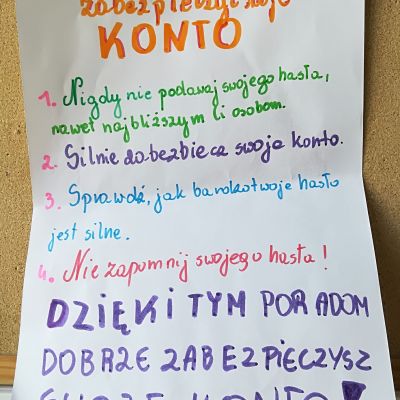 zabezpieczyć swoje
KONTO
1. Nigdy nie podawaj swojego hasła,
nawet najbliższym ci osobom.
2. Silnie dobezbieca swoje konto.
3. Sprawdź, jak bardzo twoje hasło
jest silne.
4. Nie zapomnij swojego hasła!
DZIĘKI TYM PORADOM
DOBRZE ZABEZPIECZYSZ
SWOJE KONTO!